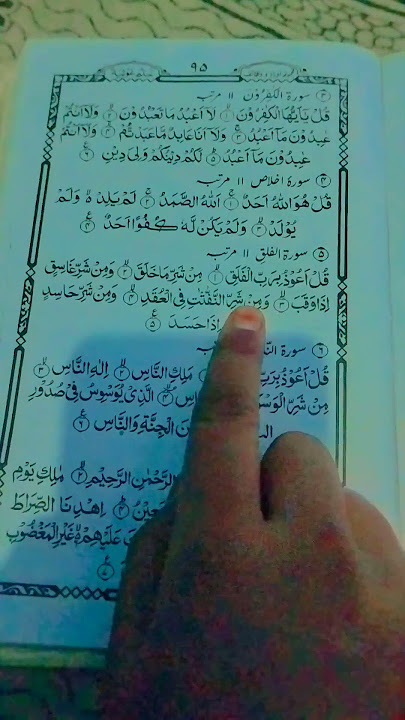 ٩٥
٣ سورة الكفرون ١١ مرتبہ
قُلْ يٰٓاَيُّهَا الْكٰفِرُوْنَ ۙ١ لَآ اَعْبُدُ مَا تَعْبُدُوْنَ ۙ٢ وَلَآ اَنْتُمْ
عٰبِدُوْنَ مَآ اَعْبُدُ ۚ٣ وَلَآ اَنَا عَابِدٌ مَّا عَبَدْتُّمْ ۙ٤ وَلَآ اَنْتُمْ
عٰبِدُوْنَ مَآ اَعْبُدُ ؕ٥ لَكُمْ دِيْنُكُمْ وَلِيَ دِيْنِ ٦
٤ سورة اخلاص ١١ مرتبہ
قُلْ هُوَ اللّٰهُ اَحَدٌ ۚ١ اَللّٰهُ الصَّمَدُ ۚ٢ لَمْ يَلِدْ ۙ وَلَمْ
يُوْلَدْ ۙ٣ وَلَمْ يَكُنْ لَّهٗ كُفُوًا اَحَدٌ ٤
٥ سورة الفلق ١١ مرتبہ
قُلْ اَعُوْذُ بِرَبِّ الْفَلَقِ ۙ١ مِنْ شَرِّ مَا خَلَقَ ۙ٢ وَمِنْ شَرِّ غَاسِقٍ
اِذَا وَقَبَ ۙ٣ وَمِنْ شَرِّ النَّفّٰثٰتِ فِي الْعُقَدِ ۙ٤ وَمِنْ شَرِّ حَاسِدٍ
اِذَا حَسَدَ ٥
٦ سورة
قُلْ اَعُوْذُ بِرَبِّ مَلِكِ النَّاسِ ۙ٢ اِلٰهِ النَّاسِ ۙ٣
مِنْ شَرِّ الْوَسْ الَّذِيْ يُوَسْوِسُ فِيْ صُدُوْرِ
الْجِنَّةِ وَالنَّاسِ ٦
الرَّحْمٰنِ الرَّحِيْمِ ۙ٢ مٰلِكِ يَوْمِ
اِهْدِنَا الصِّرَاطَ
عَلَيْهِمْ ۙ غَيْرِ الْمَغْضُوْبِ